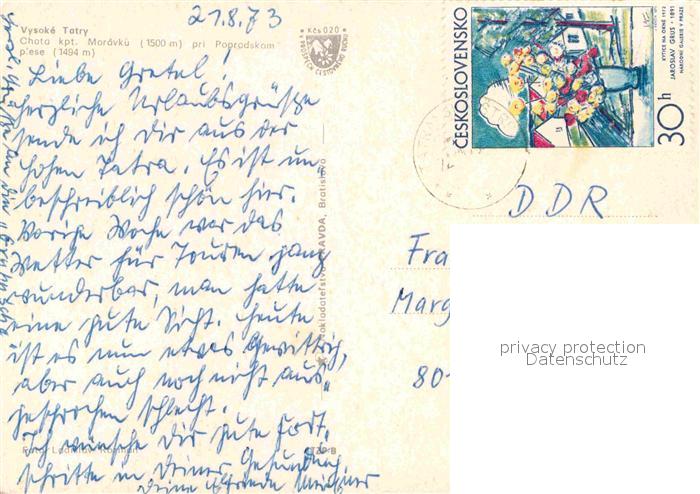 21.8.73
Vysoké Tatry
Chata kpt. Morávku (1500 m) pri Popradskom
plese (1494 m)
Kčs 0,20
Liebe Gretel!
herzliche Urlaubsgrüße
sende ich dir aus der
hohen Tatra. Es ist un-
beschreiblich schön hier.
Vorige Woche war das
Wetter für Touren ganz
wunderbar, man hatte
eine gute Sicht. Heute
ist es nun etwas gewittrig,
aber auch noch nicht aus-
gesprochen schlecht.
Ich wünsche dir gute Fort-
schritte in deiner Gesundheit,
deine Elfriede
Foto: Ladislav
PRAVDA, Bratislava
ČESKOSLOVENSKO
30 h
KYTICE NA OKNĚ 1912
JAROSLAV GRUS * 1891
NÁRODNÍ GALERIE V PRAZE
DDR
Fra
Marg
80
privacy protection
Datenschutz